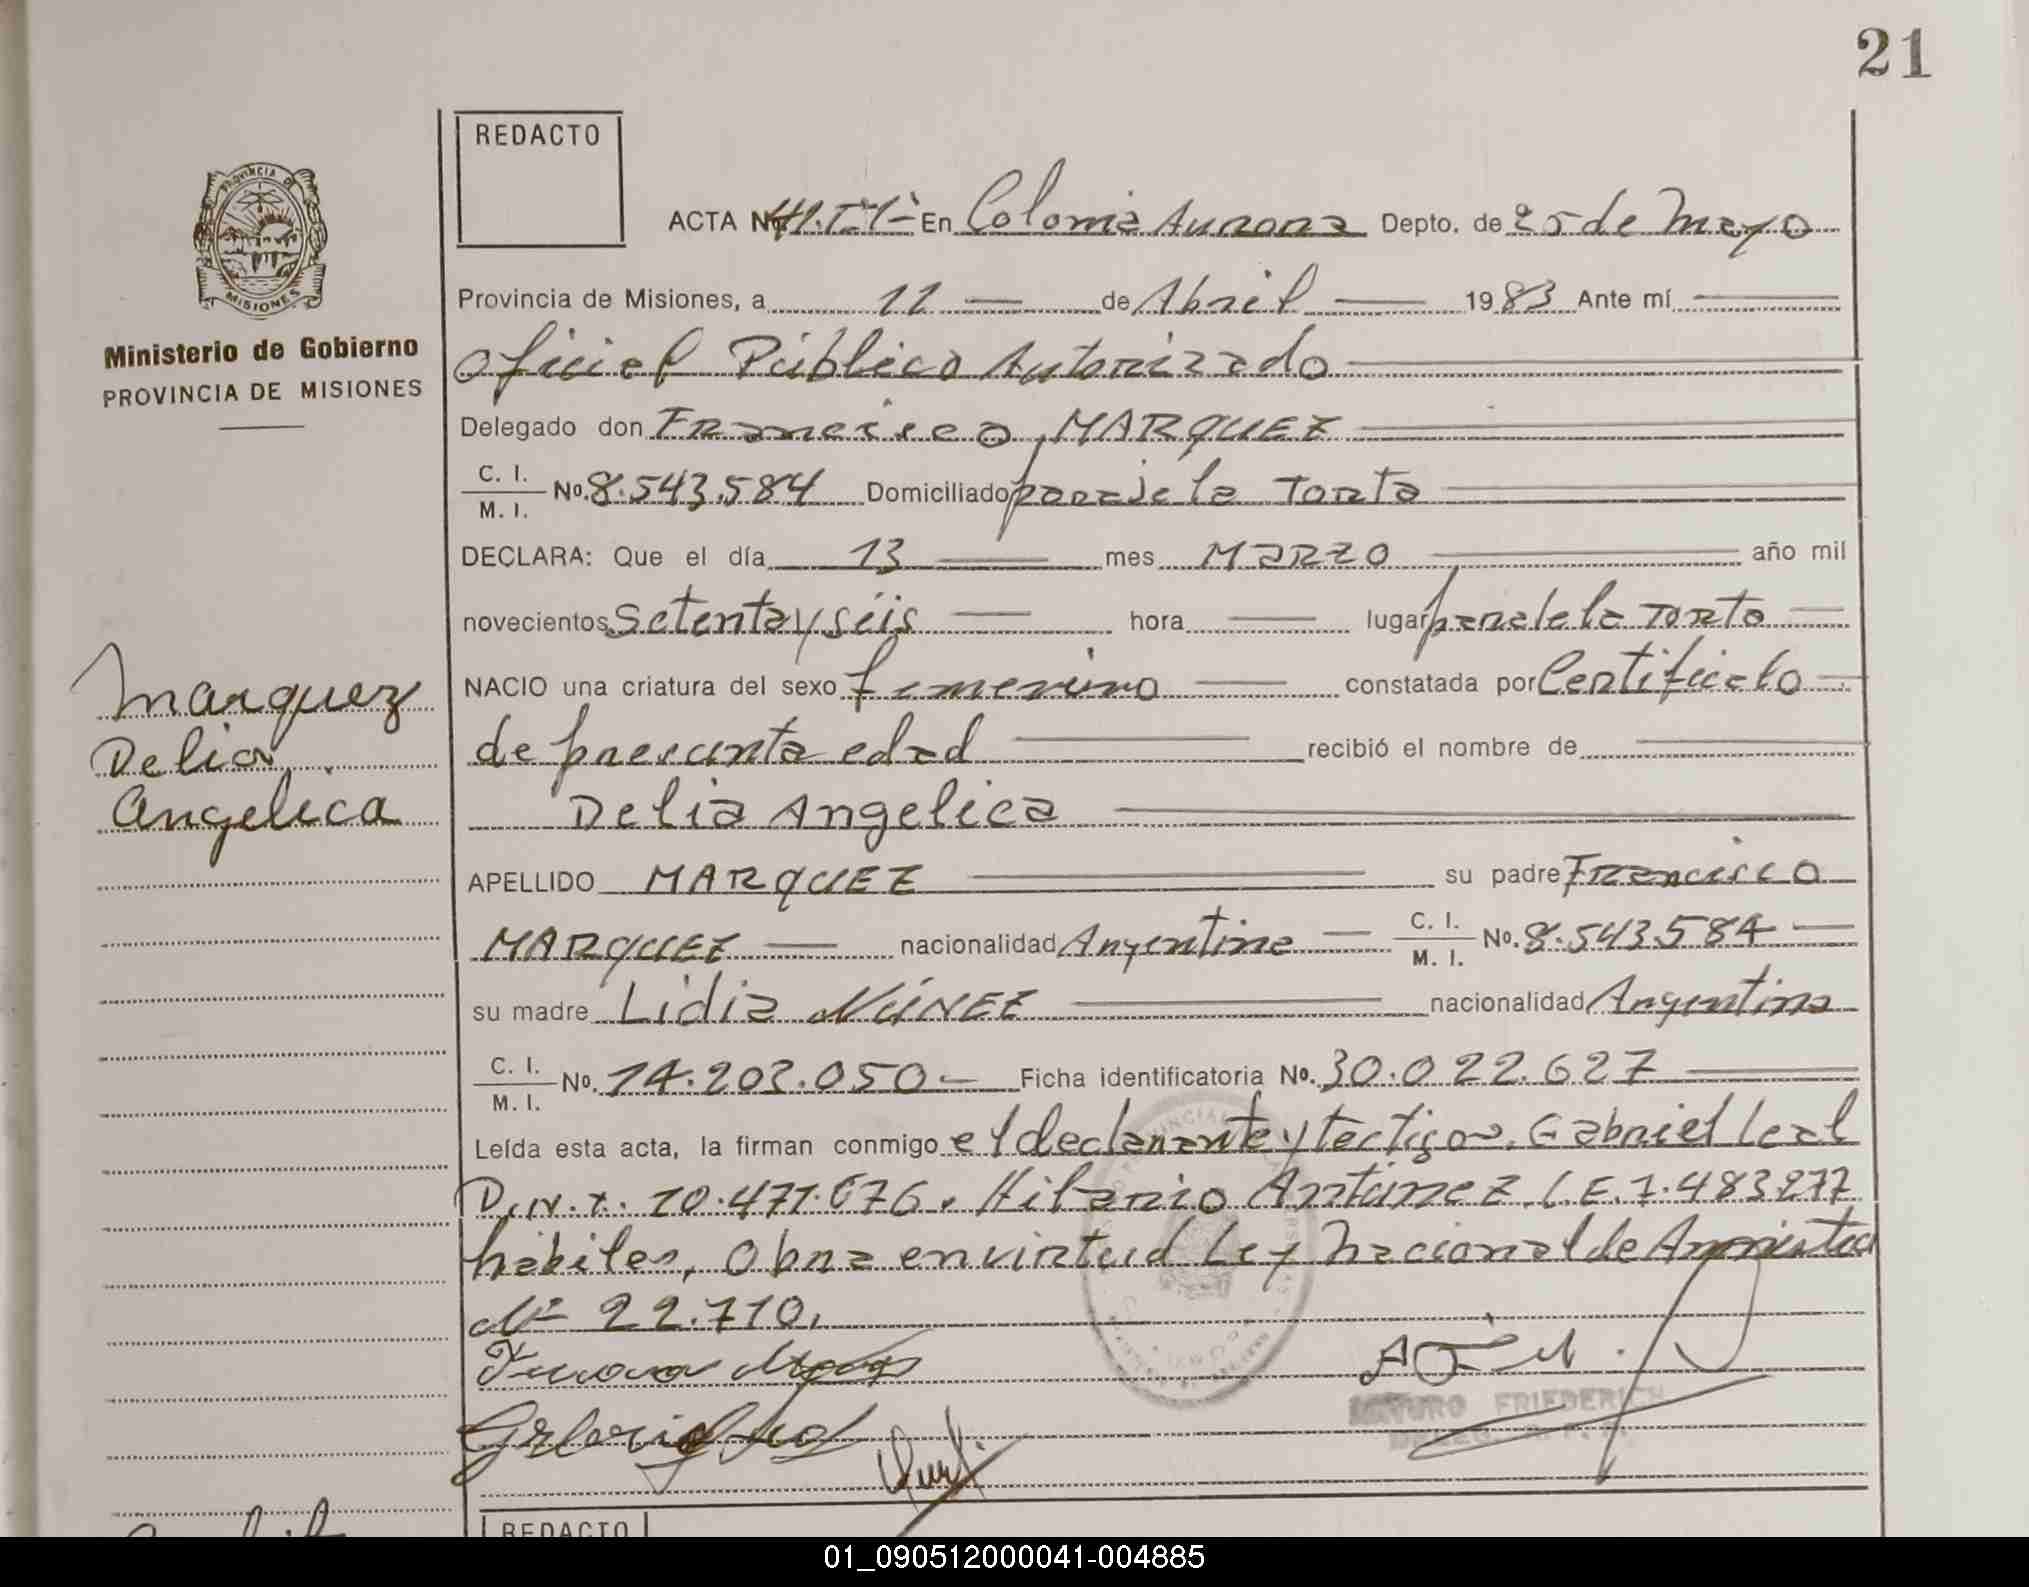 21
REDACTO
PROVINCIA DE
MISIONES
ACTA No. En Colonia Aurora Depto. de 25 de Mayo
Provincia de Misiones, a 11 de Abril 1983 Ante mí
Ministerio de Gobierno
PROVINCIA DE MISIONES
Oficial Público Autorizado
Delegado don Francisco MARQUEZ
C. I. / M. I. No. 8.543.584 Domiciliado paraje la Torta
DECLARA: Que el día 13 mes MARZO año mil
novecientos Setenta y séis hora lugar la Torta
Marquez
Delia
Angelica
NACIO una criatura del sexo femenino constatada por Certificado
de presunta edad recibió el nombre de
Delia Angelica
APELLIDO MARQUEZ su padre Francisco
MARQUEZ nacionalidad Argentina C. I. / M. I. No. 8.543.584
su madre Lidia NÚÑEZ nacionalidad Argentina
C. I. / M. I. No. 14.203.050 Ficha identificatoria No. 30.022.627
Leída esta acta, la firman conmigo el declarante y testigos, Gabriel Leal
D.N.I. 10.471.676, Hilario Antúnez L.E. 7.483277
hábiles, Obra en virtud Ley Nacional de Amnistía
Nº 22.710.
ARTURO FRIEDERICH
REDACTO
01_090512000041-004885